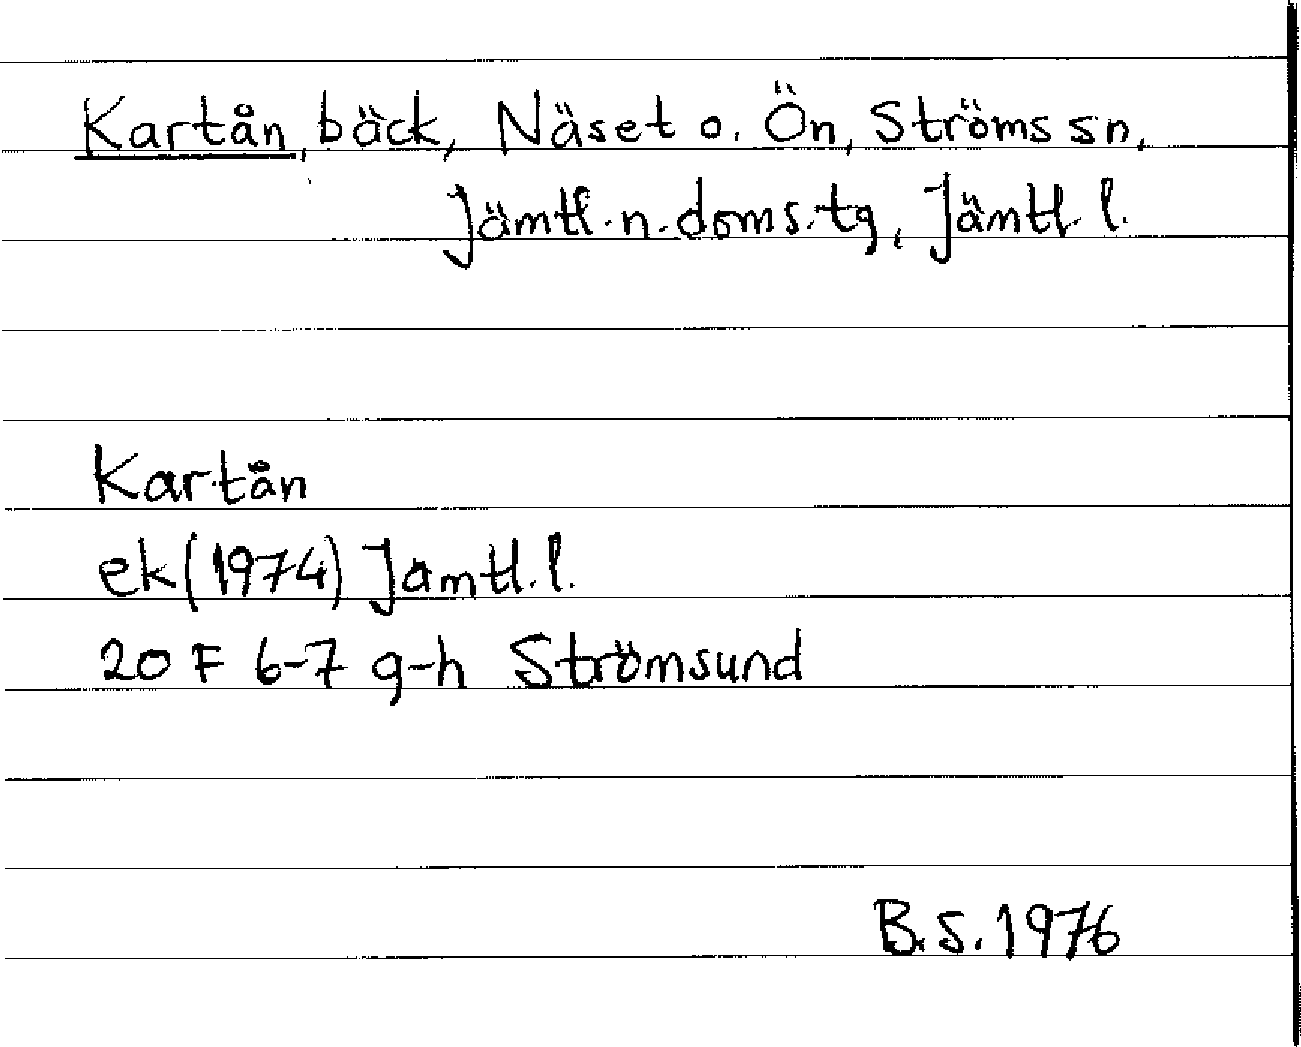 Kartån, bäck, Näset o. Ön, Ströms sn,
Jämtl. n. doms. tg, Jämtl. l.
Kartån
ek (1974) Jämtl. l.
20 F 6-7 g-h Strömsund
B.S. 1976